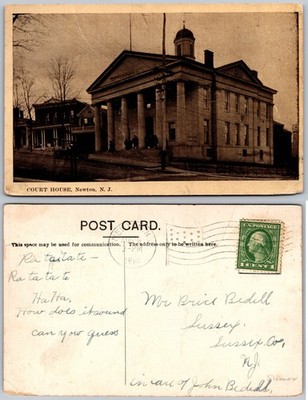 COURT HOUSE, Newton, N. J.
POST CARD.
This space may be used for communication. The address only to be written here.
Ra ta tate –
Ra ta ta ta
Ha Ha,
How does it sound
can you guess
U.S. POSTAGE
1 CENT 1
Mr Brice Bedell
Sussex,
Sussex Co,
N.J.
in care of John Bedell,